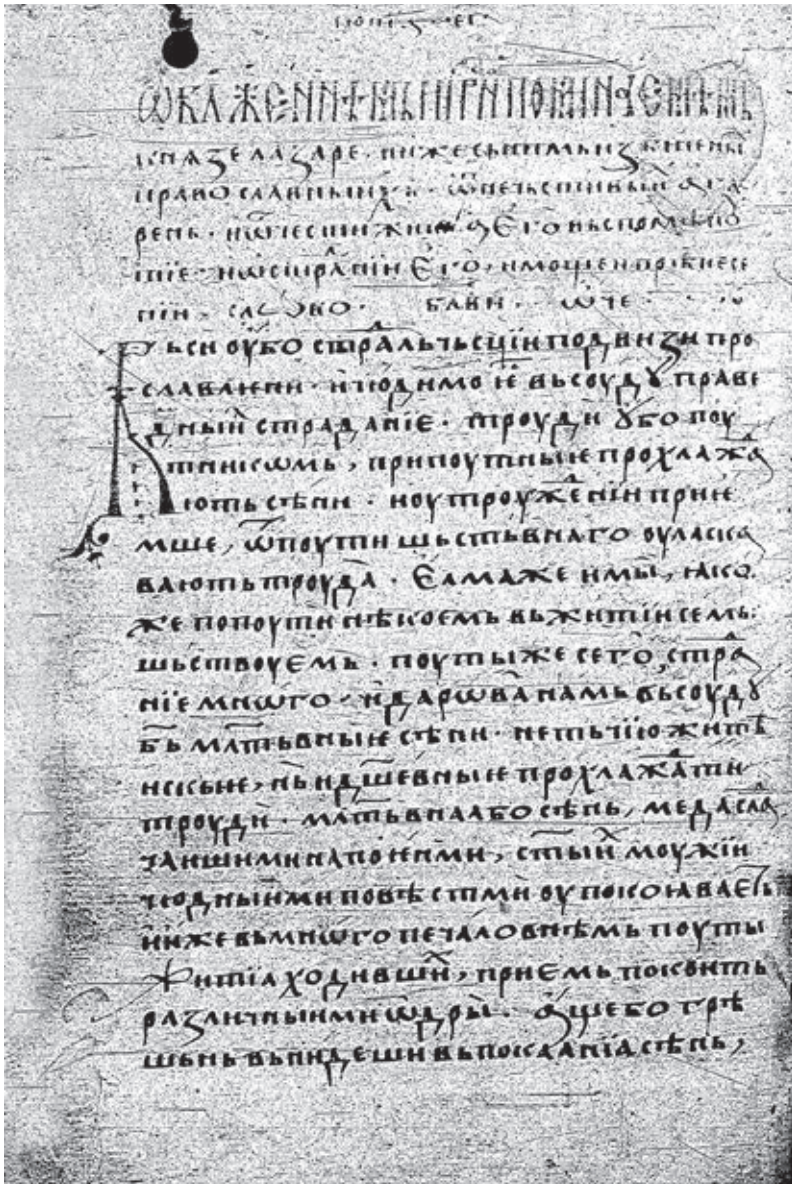 ѡ бл҃женнѣмь и приснопоминаемѣмь
кнꙗзе лазаре · и иже сь нимь избїенныⷯ
православныиⷯ · ѿ нечьстивыиⷯ ага
рень · и ѡ
нїи · слово · блⷭ҇ви · ѡч҃е ·
ьси оубо страⷣльчьсцїи подвизи про
славлѥни · и чюдимо ѥ вьсоудꙋ праве
дныиⷯ страданїе · троуди ꙋбо поу
тникѡмь, припоутныѥ прохлажⷣа
ють сѣни · и оутроужⷣенїи прїе
мше, ѿ поути шьстьвнаго оуласка
вають троуда · Єлма же и мы, ꙗко
же по поути нѣкоемь вь житїи семь
шьствоуємь · поуты же сего страⷣ
нїе мнѡго · и дарѡва намь вьсоудꙋ
б҃ь млⷭ҇тьвныѥ сѣни · не тьчїю житѣ
искыѥ, нь и дш҃евныѥ прохлажⷣати
троуди · млⷭ҇тьвнаа бо сѣнь, меда слаⷣ
чаишими напоѥнми, ст҃ыиⷯ моужїи
чюдныими повѣстми оупокоꙗваеть
ниже вь мнѡгопечаловнѣмь поуты
житїа ходившиⷯ, прїемь покоить
различныими ѡдры · аще бо грѣ
шьнь вьнидеши вь покаанїа сѣнь,